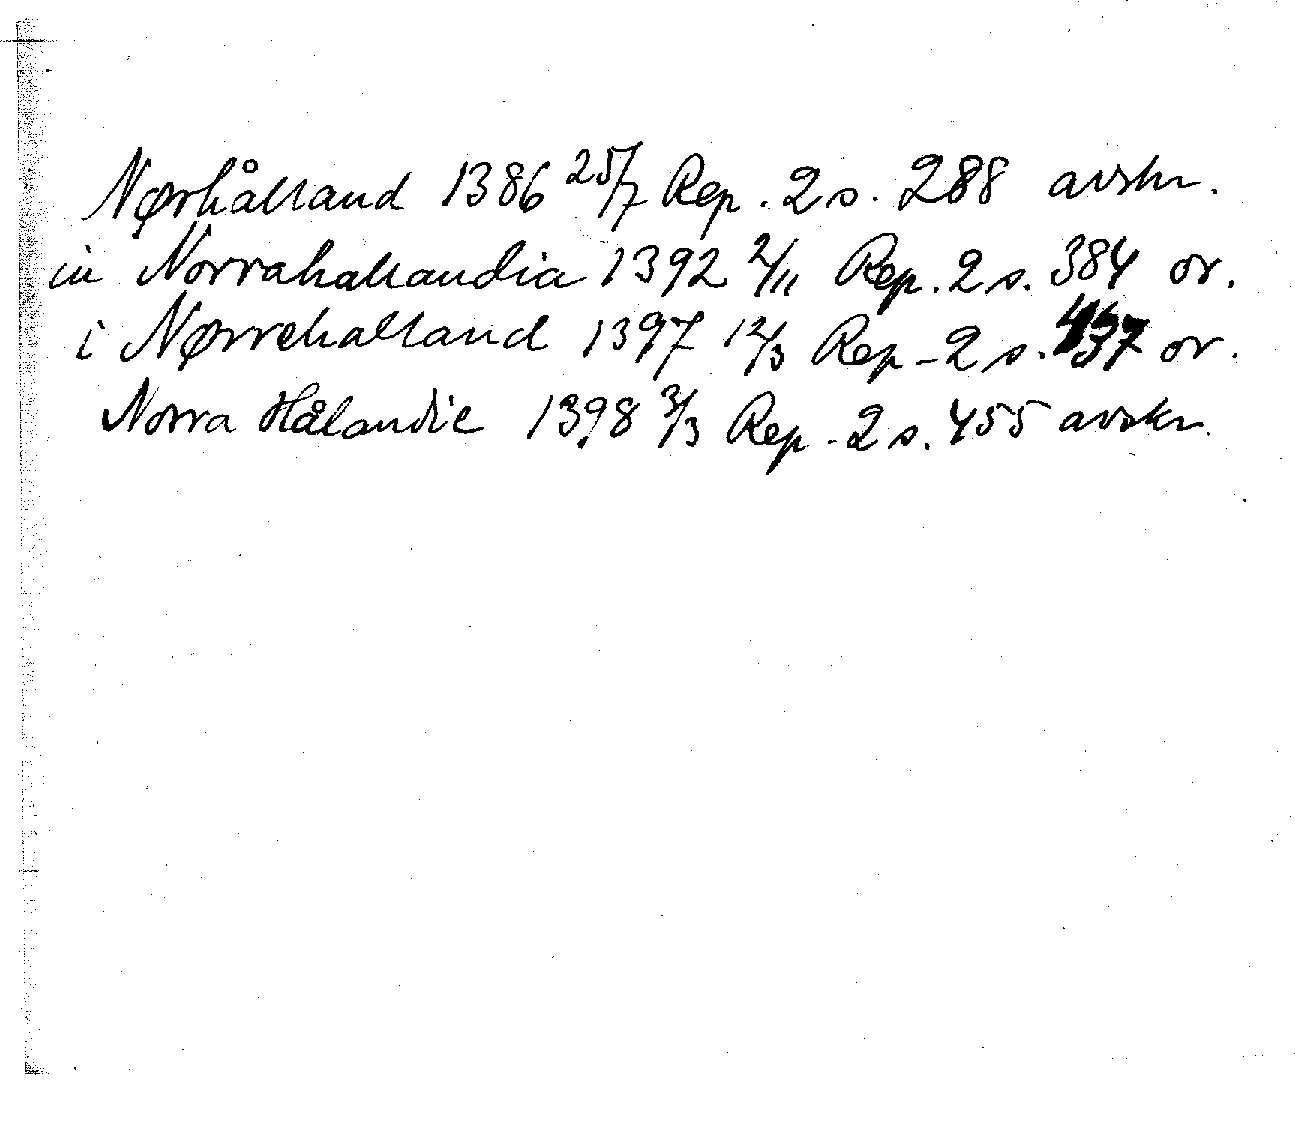 Nørhålland 1386 25/7 Rep. 2 s. 288 avskr.
in Norrahallandia 1392 2/11 Rep. 2 s. 384 or.
i Nørrehalland 1397 12/3 Rep. 2 s. 437 or.
Norra Hålandie 1398 3/3 Rep. 2 s. 455 avskr.